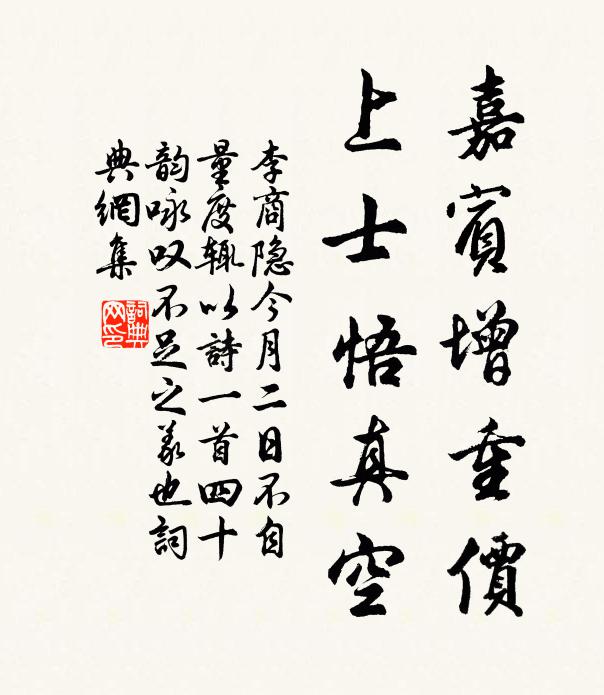 嘉賓增重價
上士悟真空
李商隐今月二日不自
量度輒以詩一首四十
韵咏叹不足之义也詞
典網集
詞典
网印